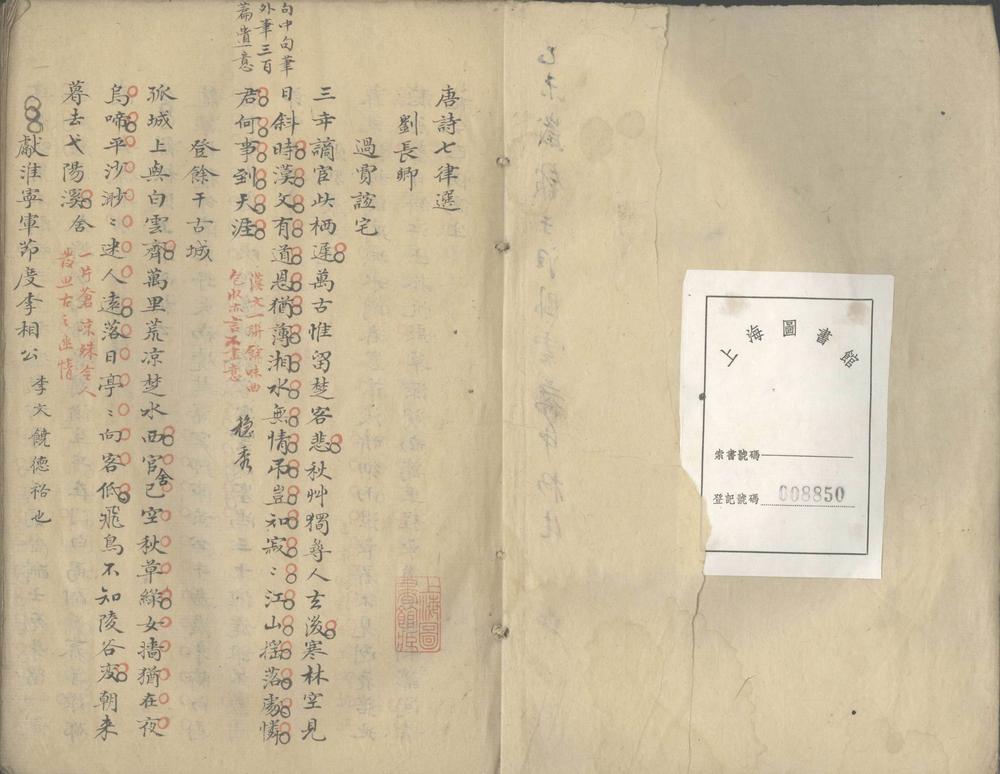 上海圖書館
索書號碼
登記號碼 008850
唐詩七律選
劉長卿
過賈誼宅
三年謫宦此栖遲萬古惟留楚客悲秋艸獨尋人去後寒林空見
日斜時漢文有道恩猶薄湘水無情吊豈知寂〻江山搖落處憐
君何事到天涯
句中句筆
外筆三百
篇遺意
漢文一聯餘味曲
包所謂言不盡意
穩秀
登餘干古城
孤城上與白雲齊萬里荒凉楚水西官舍已空秋草綠女墻猶在夜
烏啼平沙渺〻迷人遠落日亭〻向客低飛鳥不知陵谷变朝来
暮去弋陽溪
一片蒼凉殊令人
發思古之幽情
獻淮寧軍節度李相公
李文饒德裕也
上海圖書館藏